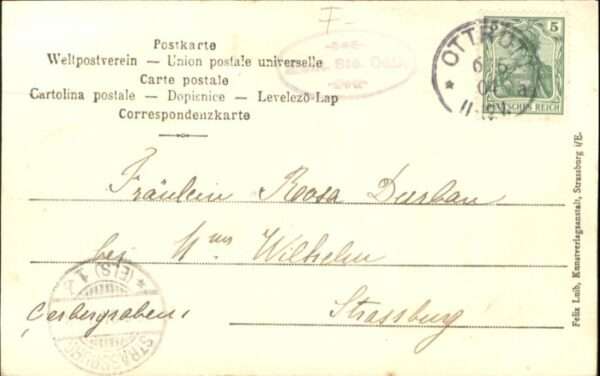 F-
Postkarte
Weltpostverein — Union postale universelle
Carte postale
Cartolina postale — Dopisnice — Levelező-Lap
Correspondenzkarte
OTTROTT
5
DEUTSCHES REICH
Fräulein Roosa Durban
bei Mme Wilhelm
Strassburg
Gerbergraben
STRASSBURG
* (ELS) 1
Felix Luib, Kunstverlagsanstalt, Strassburg i/E.